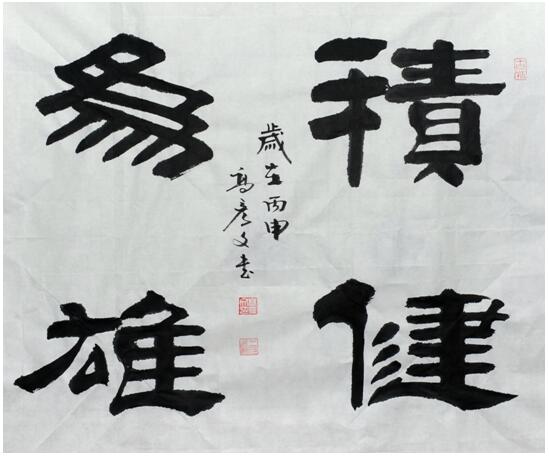 積健
為雄
歲在丙申
高彥文書